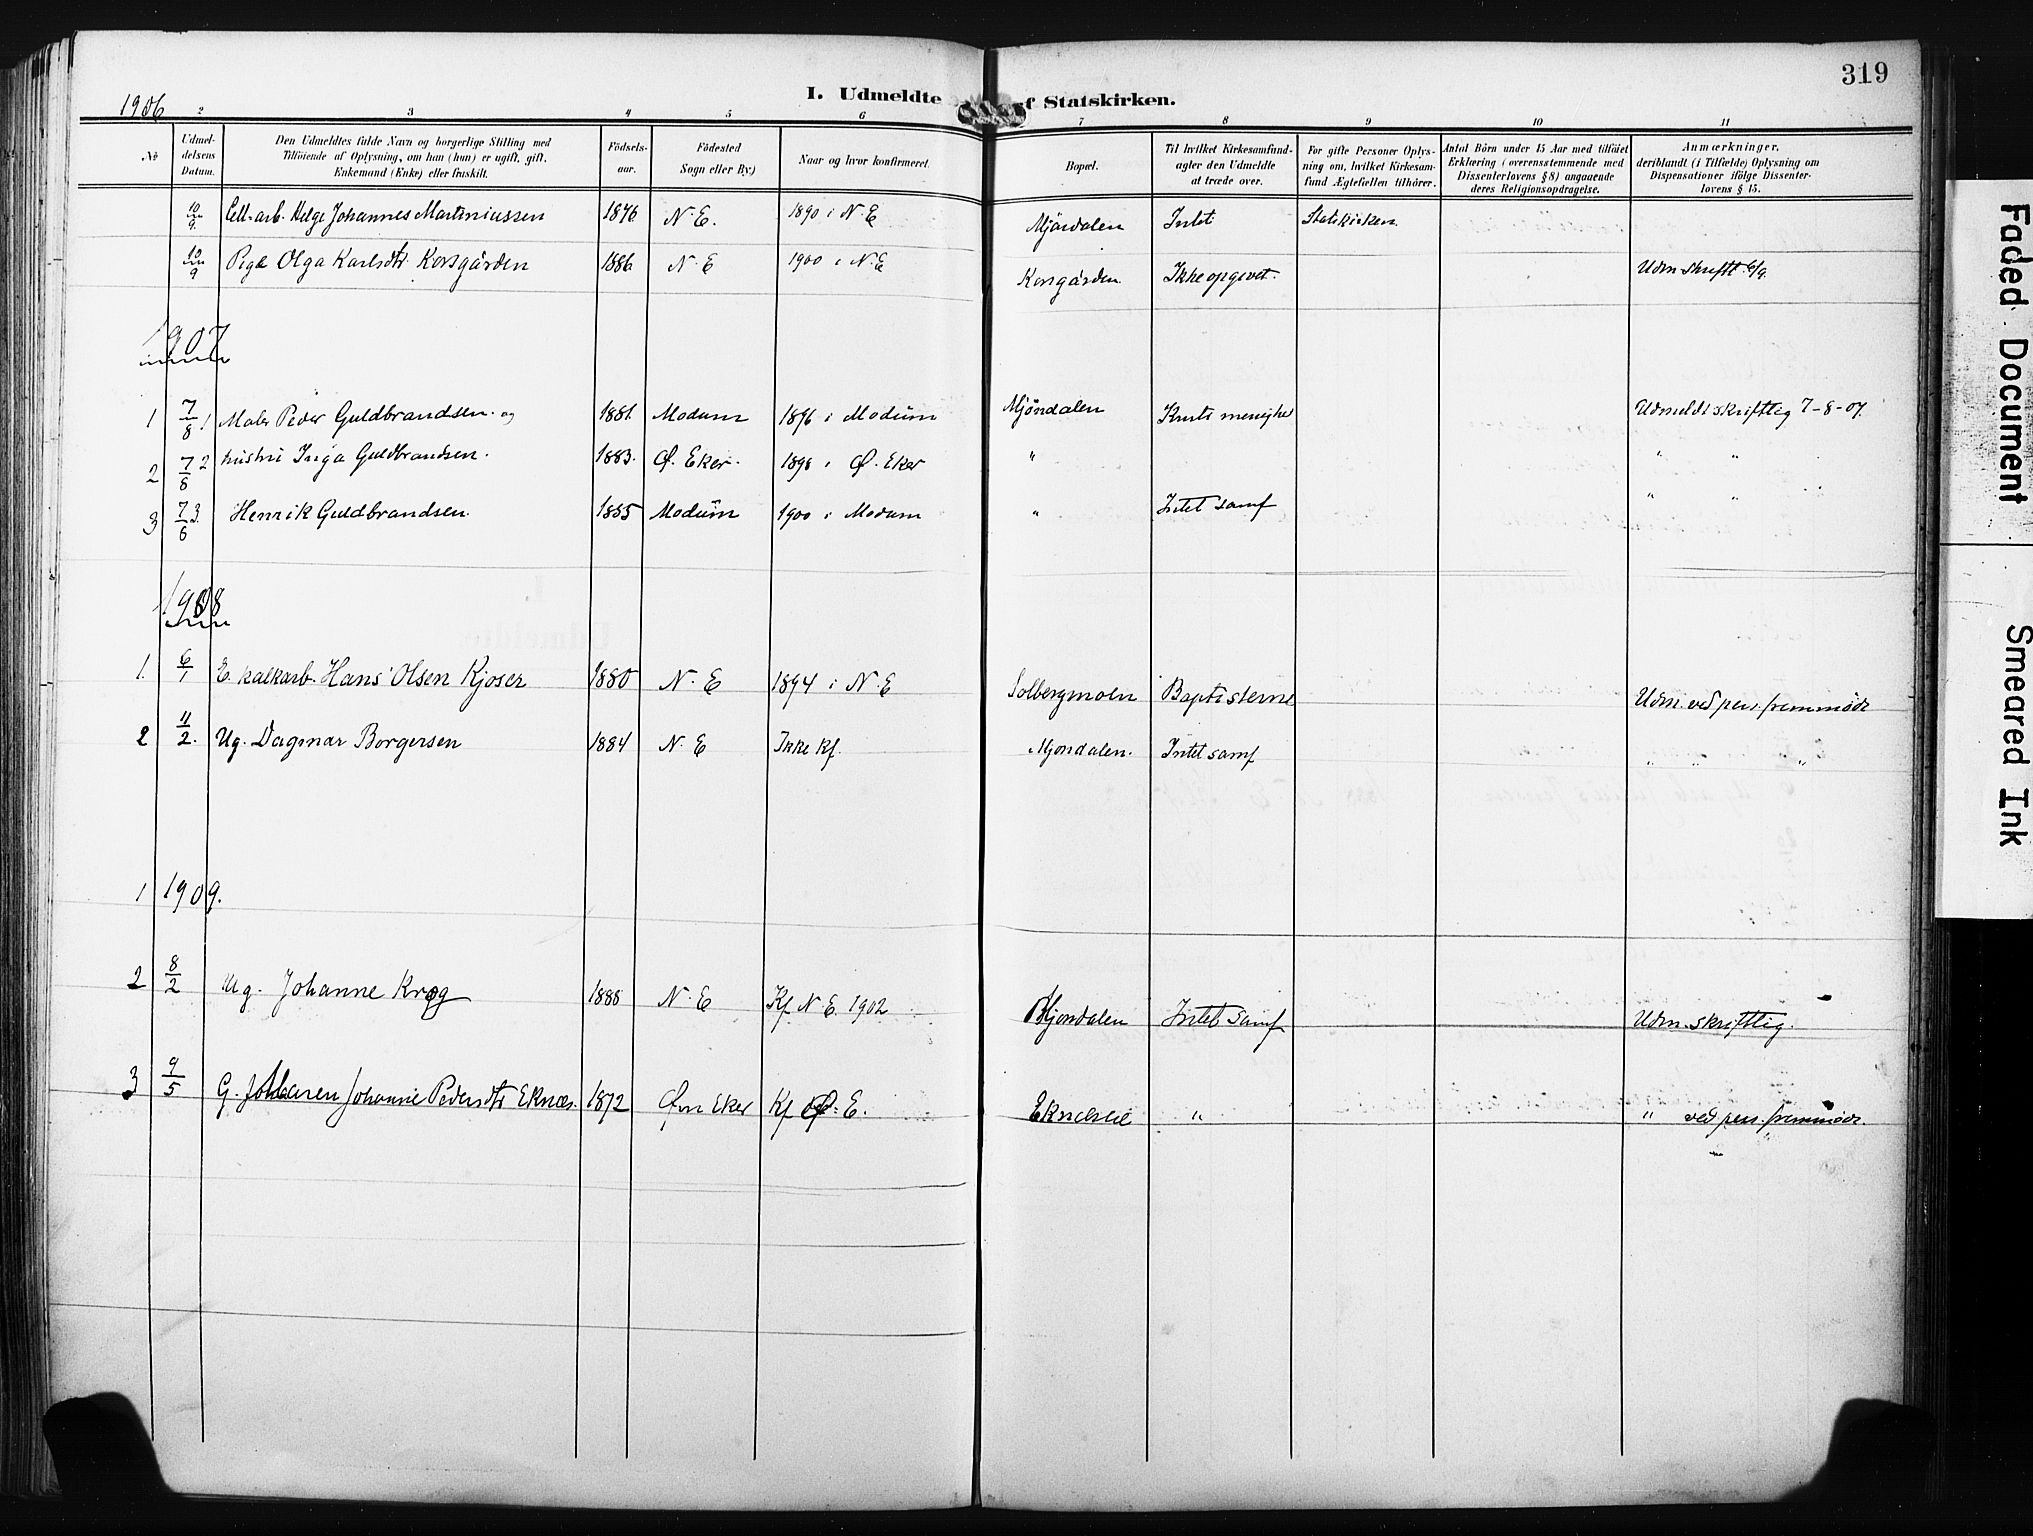 319
I. Udmeldte af Statskirken.
1906
2 3 4 5 6 7 8 9 10 11
No
Udmeldelsens Datum.
Den Udmeldtes fulde Navn og borgerlige Stilling med
Tilföiende af Oplysning, om han (hun) er ugift, gift,
Enkemand (Enke) eller fraskilt.
Födselsaar.
Födested
Sogn eller By.)
Naar og hvor konfirmeret.
Bopæl.
Til hvilket Kirkesamfund
agter den Udmeldte
at træde over.
For gifte Personer Oplysning om, hvilket Kirkesamfund Ægtefællen tilhörer.
Antal Börn under 15 Aar med tilföiet
Erklæring (overensstemmende med
Dissenterlovens § 8) angaaende
deres Religionsopdragelse.
Anmærkninger,
deriblandt (i Tilfælde) Oplysning om
Dispensationer ifölge Dissenterlovens § 15.
10/9 Cell.arb. Helge Johannes Martiniussen 1876 N.E. 1890 i N.E Mjöndalen Intet Statskirken
10/9 Pige Olga Karlsdtr Korsgården 1886 N.E 1900 i N.E Korsgården. Ikke opgivet. Udm skriftl. 6/9
1907
1 7/8 1 Maler Peder Guldbrandsen og 1881. Modum 1896 i Modum Mjöndalen Udmeldt skriftlig 7-8-07
2 7/8 2 hustru Inga Guldbrandsen. 1883. Ø. Eker. 1898 i Ø. Eker " " "
3 7/8 3. Henrik Guldbrandsen. 1885 Modum 1900 i Modum " Intet samf " "
1908
1. 6/1 E. kalkarb. Hans Olsen Kjøser 1880 N.E 1894 i N.E Solbergmoen Baptisterne Udm. ved pers. fremmöde
2 11/2. Ug. Dagmar Borgersen 1884 N.E Ikke kf. Mjøndalen. Intet samf " " "
1 1909.
2 8/2 Ug. Johanne Krog 1888 N.E Kf N.E. 1902 Mjøndalen Intet samf Udm. skriftlig.
3 9/5 G. Maren Johanne Pedersdtr Eknæs. 1872 Øvr Eker Kf Ø. E. " " ved pers. fremmöde.
Faded Document
Smeared Ink